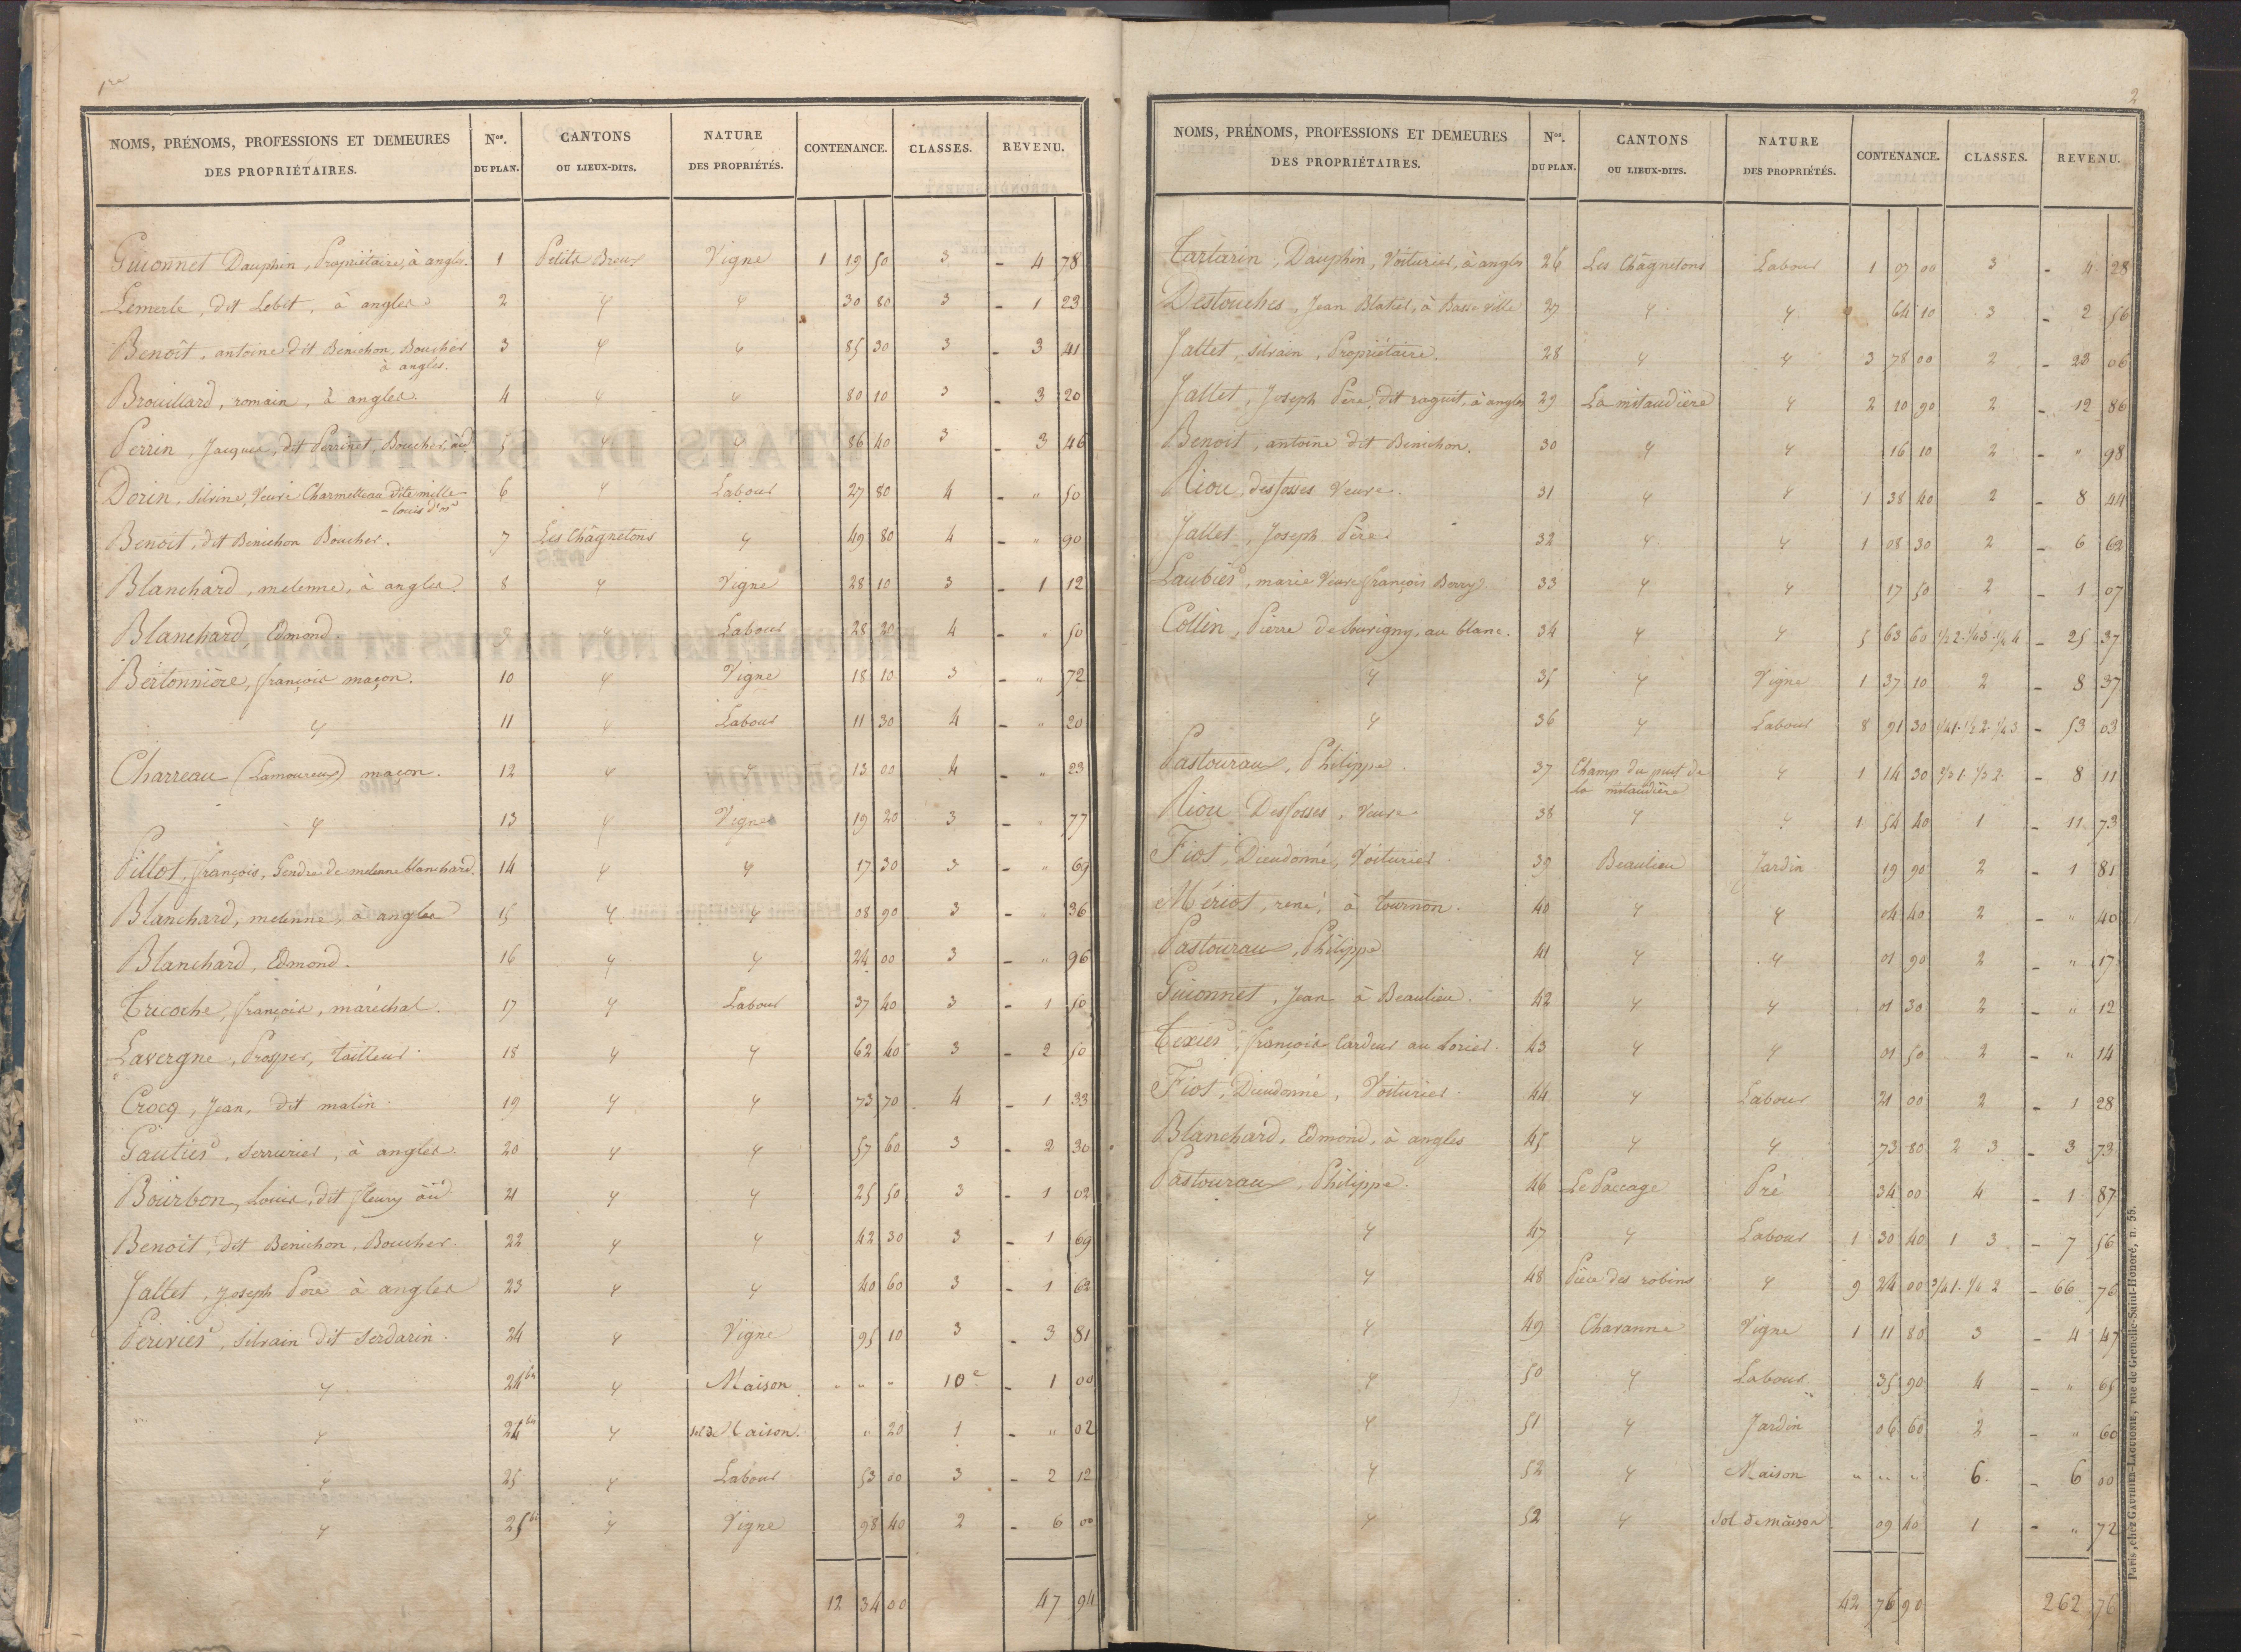 1re
NOMS, PRÉNOMS, PROFESSIONS ET DEMEURES DES PROPRIÉTAIRES. Nos. DU PLAN. CANTONS OU LIEUX-DITS. NATURE DES PROPRIÉTÉS. CONTENANCE. CLASSES. REVENU.
Guionnet Dauphin, Propriétaire, à angles. 1 Petits Breux Vigne 1 19 50 3 - 4 78
Lemerle, dit Lobet, à angles 2 " " 30 80 3 - 1 23
Benoît, antoine dit Benichon Boucher 3 " " 85 30 3 - 3 41
à angles.
Brouillard, romain, à angles. 4 " " 80 10 3 - 3 20
Perrin, Jacques, dit Perrinet, Boucher, aud 5 " " 86 40 3 - 3 46
Dorin, Silvine, Veuve Charmetteau dite mille 6 " Labour 27 80 4 - " 50
- louis d'or
Benoit, dit Benichon Boucher. 7 Les Châgnetons " 49 80 4 - " 90
Blanchard, melenne, à angles. 8 " Vigne 28 10 3 - 1 12
Blanchard, Edmond. 9 " Labour 28 20 4 - " 50
Bertonnière, françois maçon. 10 " Vigne 18 10 3 - " 72
" 11 " Labour 11 30 4 - " 20
Charreau (Lamoureux) maçon. 12 " " 13 00 4 - " 23
" 13 " Vigne 19 20 3 - " 77
Pillot, françois, Gendre de melenne blanchard. 14 " " 17 30 3 - " 69
Blanchard, melenne, à angles 15 " " 08 90 3 - " 36
Blanchard, Edmond. 16 " " 24 00 3 - " 96
Tricoche, françois, maréchal. 17 " Labour 37 40 3 - 1 50
Lavergne, Prosper, tailleur. 18 " " 62 40 3 - 2 50
Crocq, Jean, dit malin. 19 " " 73 70 4 - 1 33
Gautier, Serrurier, à angles. 20 " " 57 60 3 - 2 30
Bourbon, Louis, dit fleury aud 21 " " 25 50 3 - 1 02
Benoit, dit Benichon, Boucher. 22 " " 42 30 3 - 1 69
Jallet, Joseph Père à angles 23 " " 40 60 3 - 1 62
Perivier, Silvain dit Serdarin. 24 " Vigne 95 10 3 - 3 81
" 24 bis " Maison " " " 10e - 1 00
" 24 bis " sol de Maison. " 20 1 - " 02
" 25 " Labour 53 00 3 - 2 12
" 25 bis " Vigne 98 40 2 - 6 00
12 34 00 47 94
2
NOMS, PRÉNOMS, PROFESSIONS ET DEMEURES DES PROPRIÉTAIRES. Nos. DU PLAN. CANTONS OU LIEUX-DITS. NATURE DES PROPRIÉTÉS. CONTENANCE. CLASSES. REVENU.
Tartarin, Dauphin, Voiturier, à angles 26 Les Châgnetons Labour 1 07 00 3 - 4 28
Destouches, Jean Blatier, à Basse ville 27 " " 64 10 3 - 2 56
Jallet, Silvain, Propriétaire. 28 " " 3 78 00 2 - 23 06
Jallet, Joseph Père, dit raguit, à angles 29 La mitaudière " 2 10 90 2 - 12 86
Benoit, antoine dit Benichon. 30 " " 16 10 2 - " 98
Riou, desfosses Veuve. 31 " " 1 38 40 2 - 8 44
Jallet, Joseph Père 32 " " 1 08 30 2 - 6 62
Laubier, marie Veuve françois Berry. 33 " " 17 50 2 - 1 07
Collin, Pierre de Souvigny, au blanc. 34 " " 5 63 60 1/2 2. 1/4 3. 1/4 4 - 25 37
" 35 " Vigne 1 37 10 2 - 8 37
" 36 " Labour 8 91 30 1/4 1. 1/2 2. 1/4 3 - 53 03
Pastouraux, Philippe. 37 Champ du puit de " 1 14 30 2/3 1. 1/3 2. - 8 11
la mitaudière
Riou Desfosses, Veuve 38 " " 1 54 40 1 - 11 73
Fiot, Dieudonné, Voiturier. 39 Beaulieu Jardin 19 90 2 - 1 81
Mériot, rené, à Tournon. 40 " " 04 40 2 - " 40
Pastouraux, Philippe 41 " " 01 90 2 - " 17
Guionnet, Jean à Beaulieu. 42 " " 01 30 2 - " 12
Texier, françois Cardeur au Loriet. 43 " " 01 50 2 - " 14
Fiot, Dieudonné, Voiturier. 44 " Labour 21 00 2 - 1 28
Blanchard, Edmond, à angles 45 " " 73 80 2 3 - 3 73
Pastouraux, Philippe. 46 Le Paccage Pré 34 00 4 - 1 87
" 47 " Labour 1 30 40 1 3 - 7 56
" 48 Pièce des robins " 9 24 00 3/4 1. 1/4 2 - 66 76
" 49 Chavanne Vigne 1 11 80 3 - 4 47
" 50 " Labour 35 90 4 - " 65
" 51 " Jardin 06 60 2 - " 60
" 52 " Maison " " " 6. - 6 00
" 52 " Sol de maison 09 40 1 - " 72
42 76 90 262 76
Paris, chez GAUTHIER-LAGUIONIE, rue de Grenelle-Saint-Honoré, n. 55.